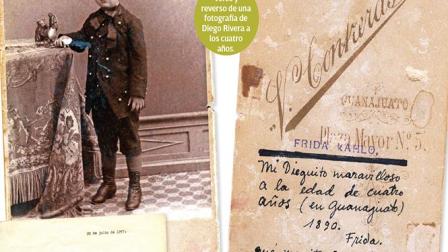 verso y
reverso de una
fotografía de
Diego Rivera a
los cuatro
años.
20 de julio de 1957.
V. Contreras
GUANAJUATO
Plaza Mayor Nº 5.
FRIDA KAHLO.
Mi Dieguito maravilloso
a la edad de cuatro
años (en Guanajuato)
1890.
Frida.